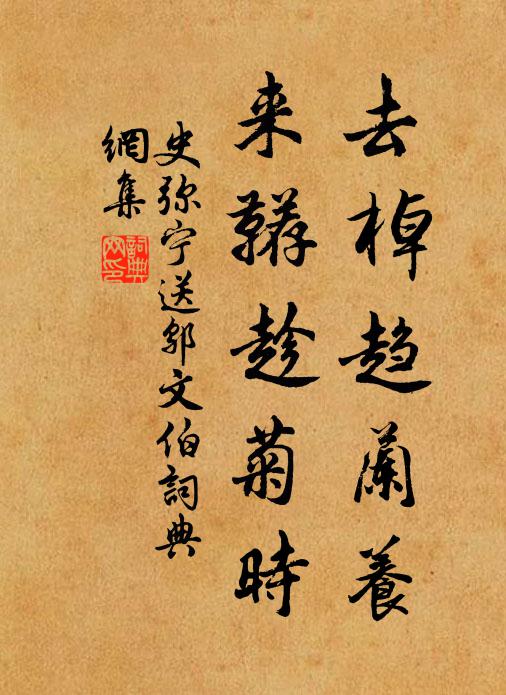 去棹趋蘭養
来鞯趁菊時
史弥宁送鄔文伯詞典
網集
詞典
网印